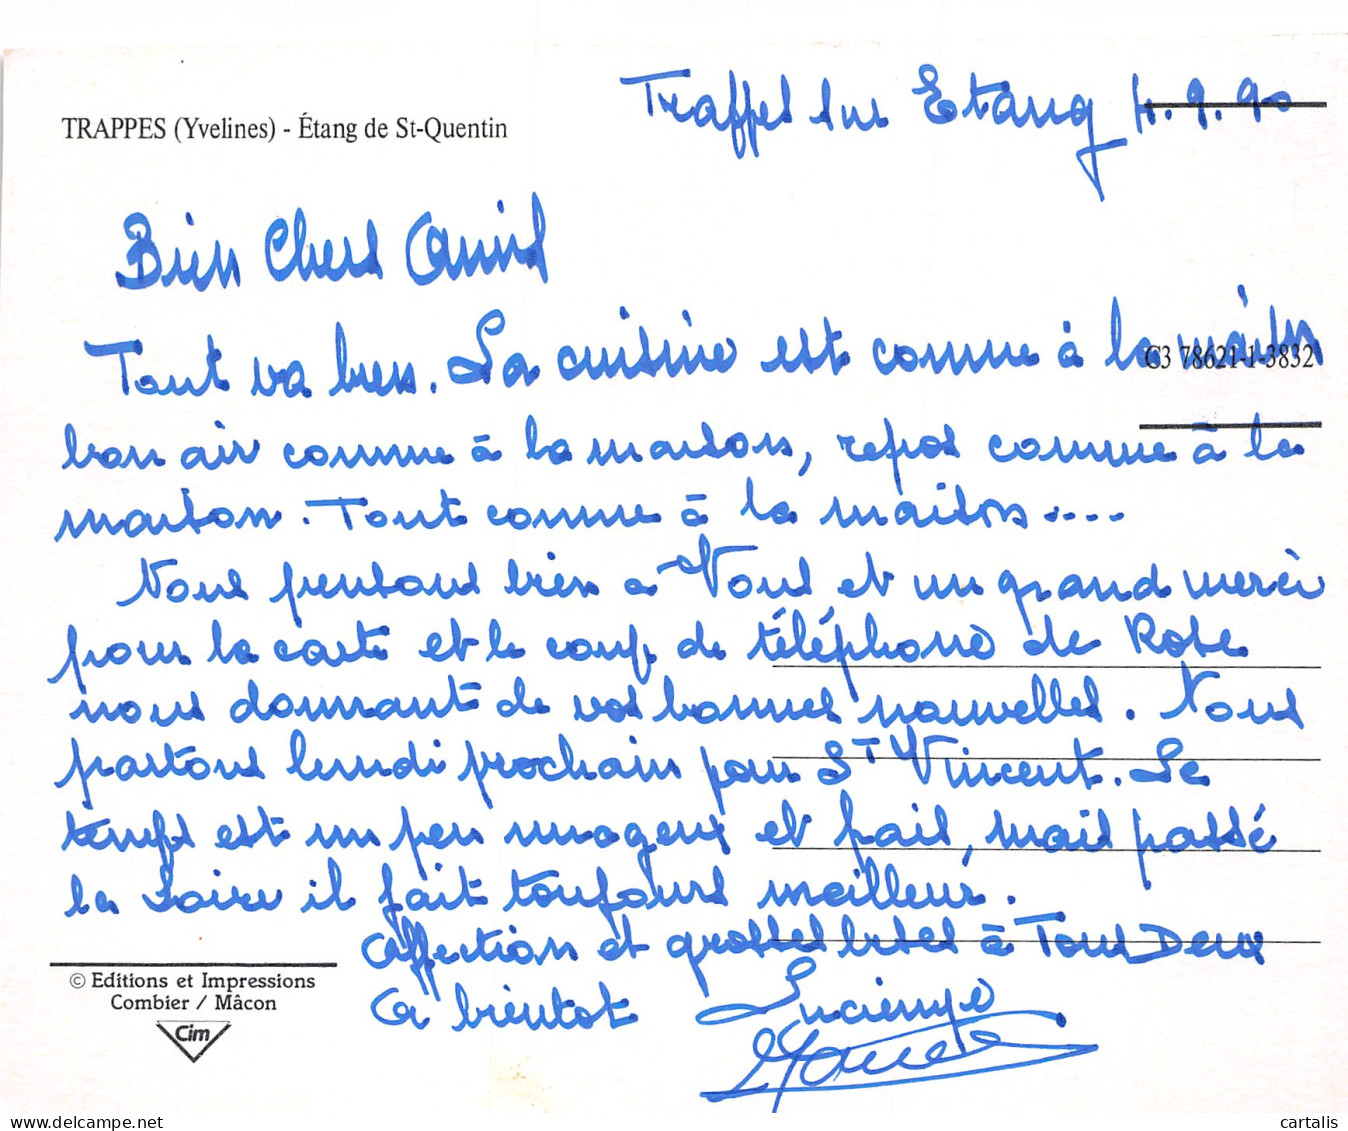 Trappes sur Etang 4.9.90
TRAPPES (Yvelines) - Étang de St-Quentin
Bien Chers Amis
Tout va bien. La cuisine est comme à la maison
C3 78621-1-3832
bon air comme à la maison, repos comme à la
maison. Tout comme à la maison....
Nous pensons bien à Vous et un grand merci
pour la carte et le coup de téléphone de Rose
nous donnant de vos bonnes nouvelles. Nous
partons lundi prochain pour St Vincent. Le
temps est un peu nuageux et frais, mais passé
la Loire il fait toujours meilleur.
Affection et grosses bises à Tous Deux
A bientot Lucienne
© Editions et Impressions
Combier / Mâcon
Cim
www.delcampe.net
cartalis